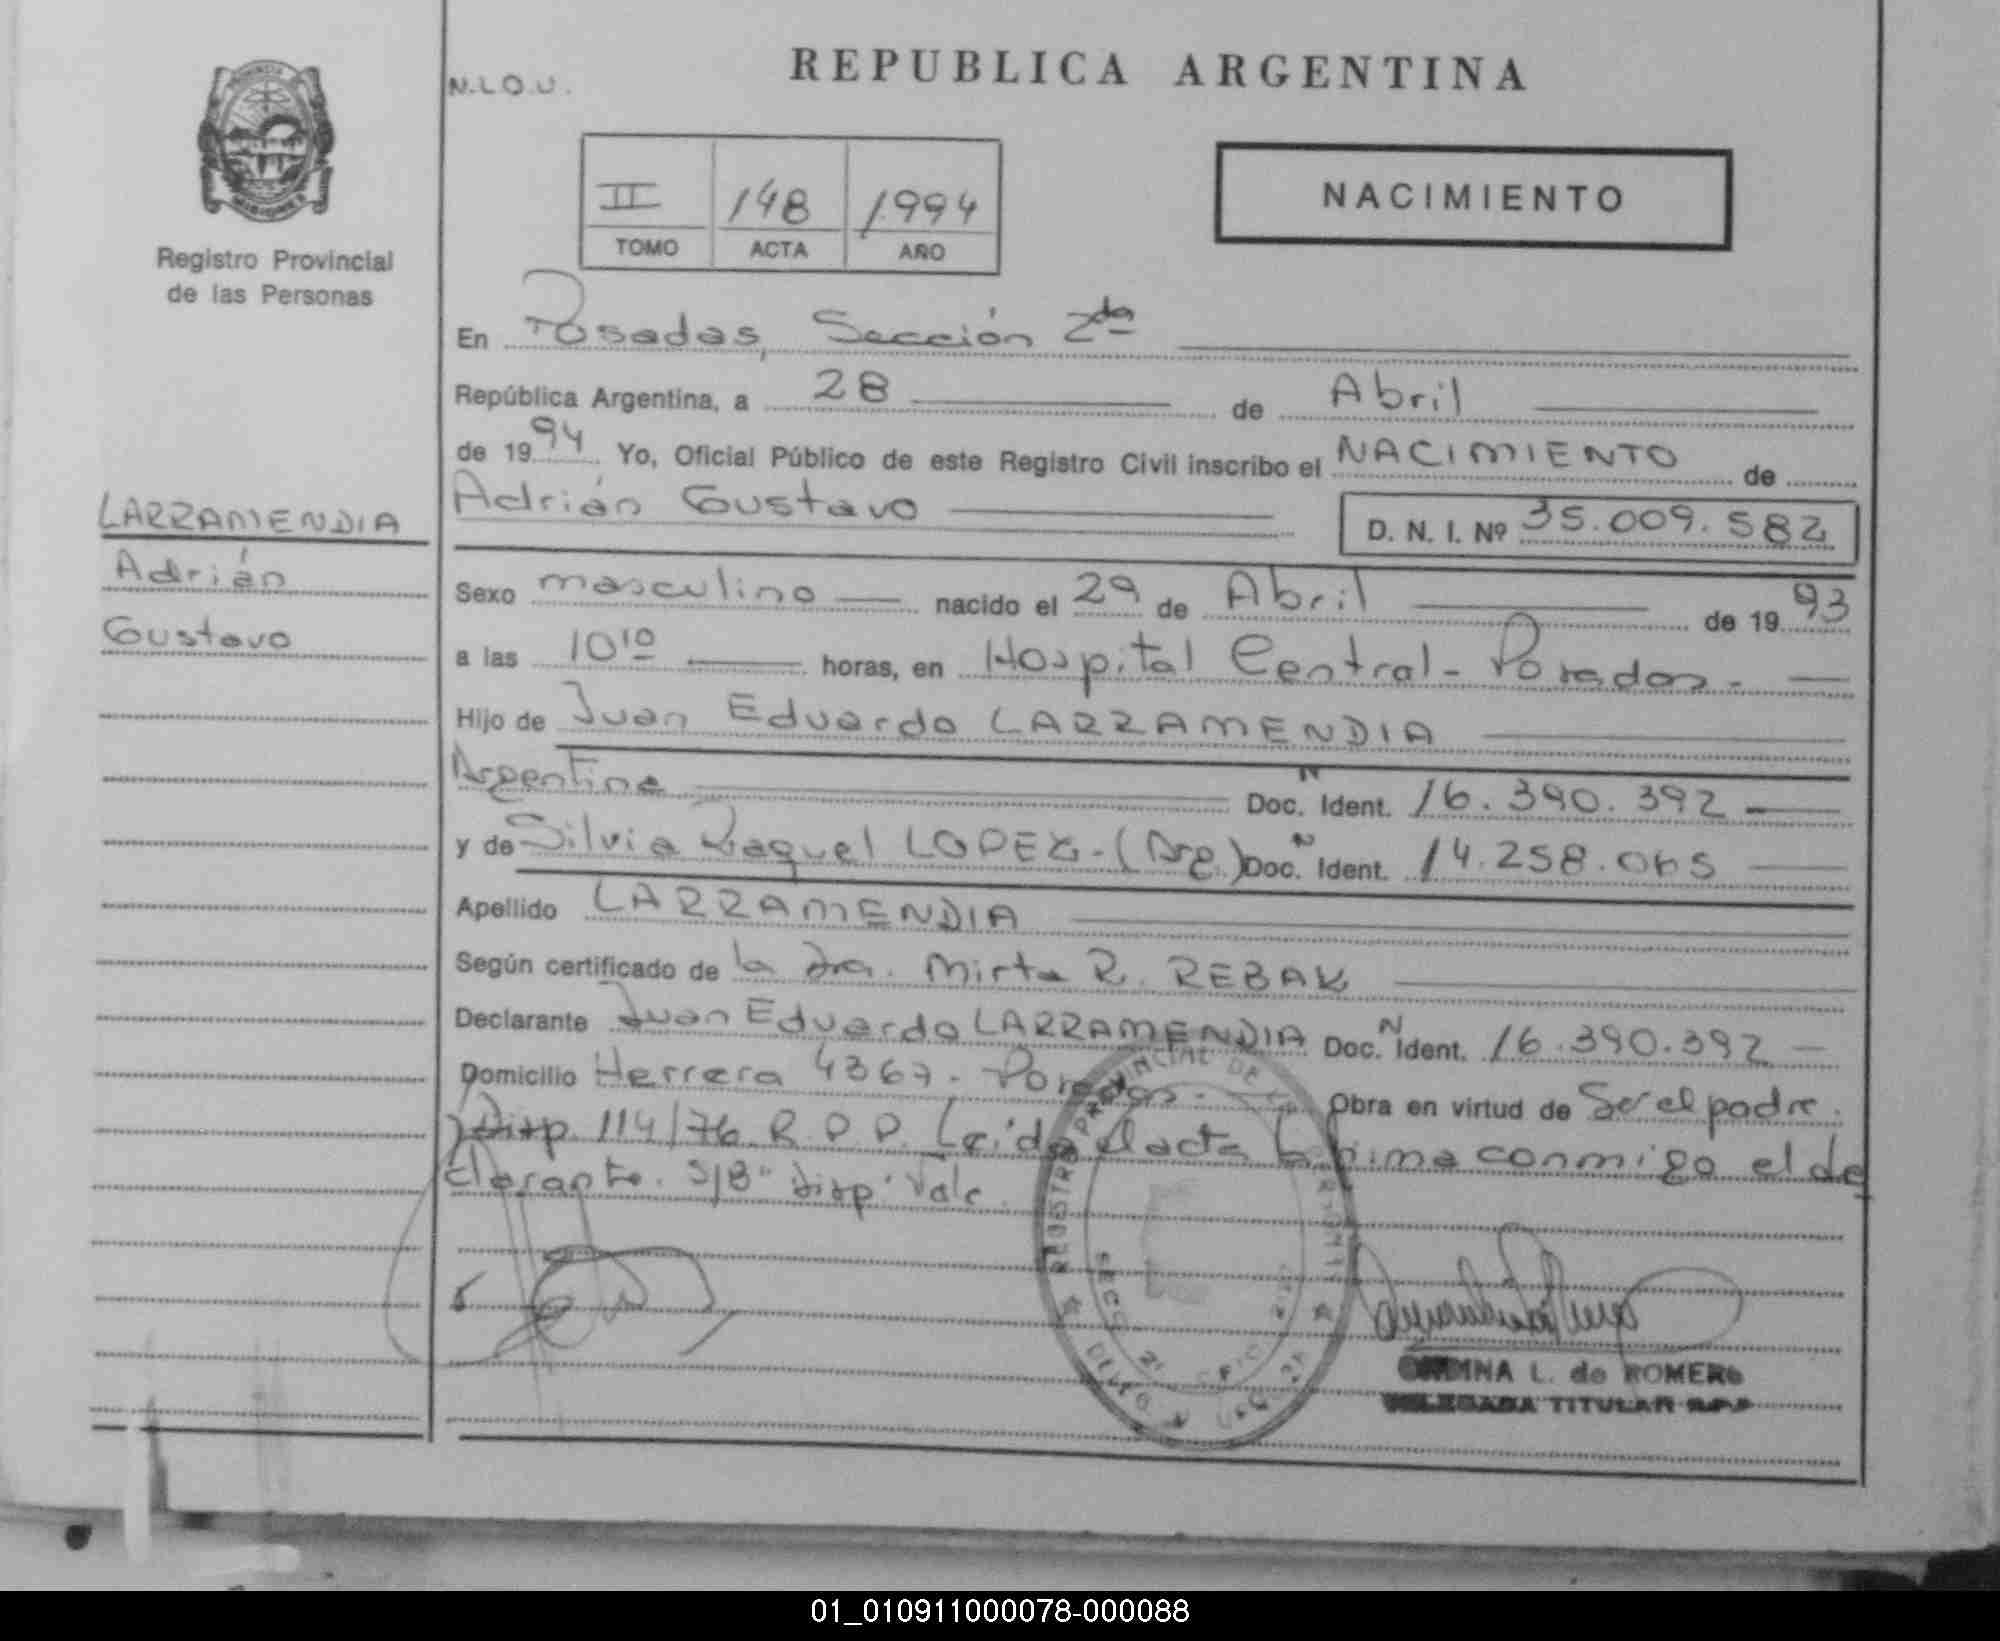 REPUBLICA ARGENTINA
N.L.O.U.
MISIONES
Registro Provincial
de las Personas
II 148 1994
TOMO ACTA AÑO
NACIMIENTO
En Posadas, Sección 2da
República Argentina, a 28 de Abril
de 1994 Yo, Oficial Público de este Registro Civil inscribo el NACIMIENTO de
Adrián Gustavo D. N. I. Nº 35.009.582
LARRAMENDIA
Adrián
Gustavo
Sexo masculino nacido el 29 de Abril de 1993
a las 10 10 horas, en Hospital Central - Posadas. -
Hijo de Juan Eduardo LARRAMENDIA
Argentino Doc. N Ident. 16.390.392
y de Silvia Raquel LOPEZ - (Arg.) Doc. N Ident. 14.258.065
Apellido LARRAMENDIA
Según certificado de la Dra. Mirta R. REBAK
Declarante Juan Eduardo LARRAMENDIA Doc. N Ident. 16.390.392
Domicilio Herrera 4367 - Posadas. Obra en virtud de Ser el padre.
Disp. 114/76 R.P.P. Leída el acta la firma conmigo el de
clarante. S/B" Disp" Vale.
L. de ROMERO
DELEGADA TITULAR R.P.P
01_010911000078-000088